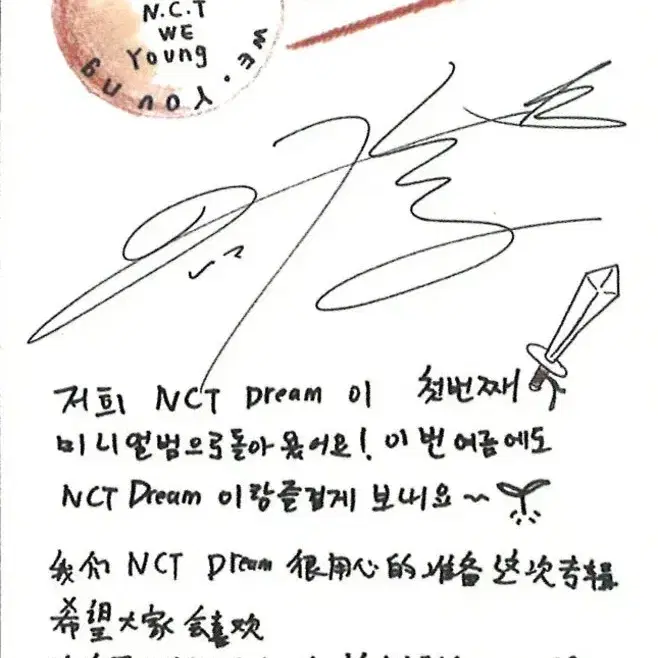 N.C.T
WE
Young
WE. YOUNG
저희 NCT Dream 이 첫번째
미니앨범으로돌아 왔어요! 이번 여름에도
NCT Dream 이랑즐겁게 보내요~
我们 NCT Dream 很用心的准备这次专辑
希望大家会喜欢